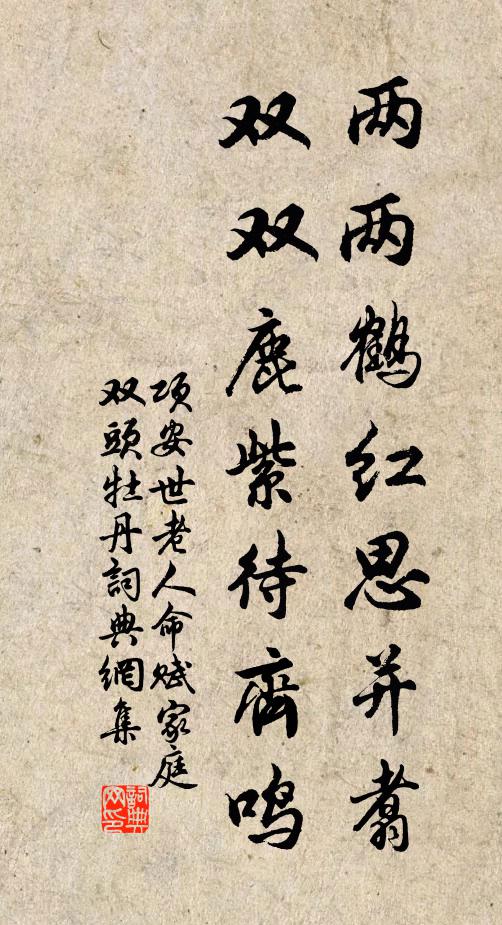 两两鹤红思并翥
双双鹿紫待齊鸣
项安世老人命赋家庭
双頭牡丹詞典網集
詞典网印